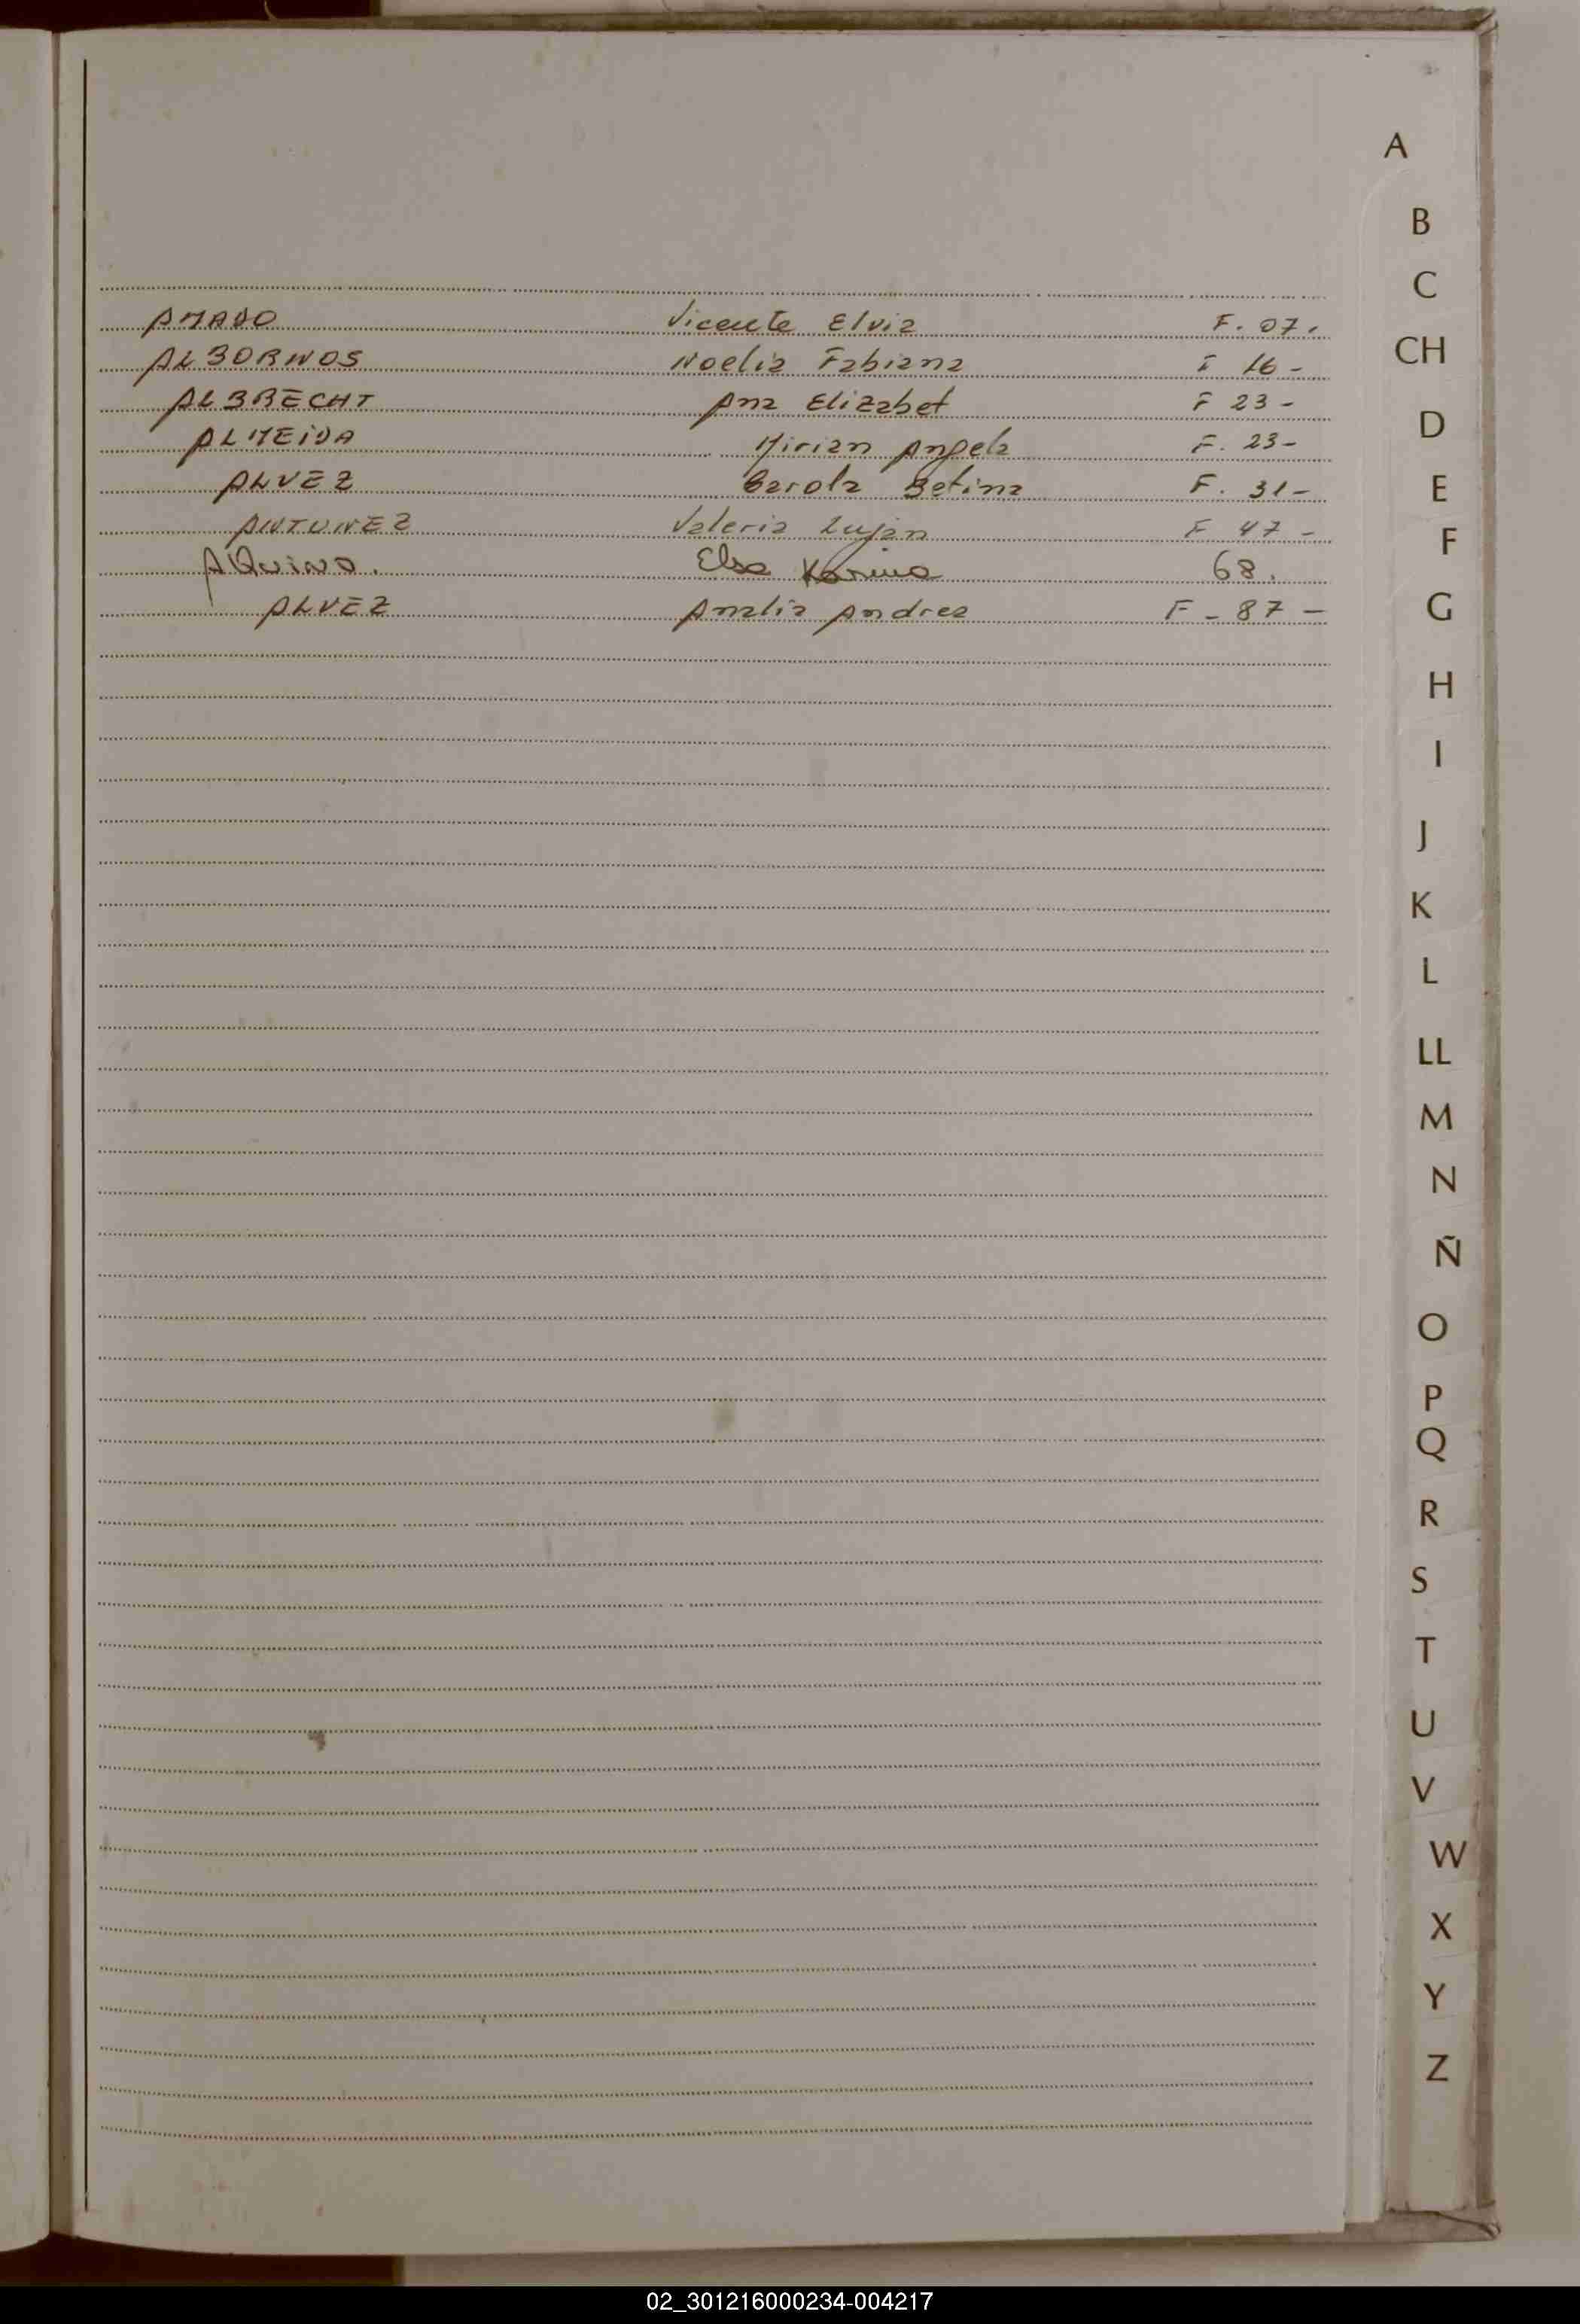 A
B
C
AMADO Vicente Elvia F. 07.
CH
ALBORNOS Noelia Fabiana F 16 -
ALBRECHT Ana Elizabet F 23 -
D
ALMEIDA Mirian Angela F. 23-
ALVEZ Carola Betina F. 31-
E
ANTUNEZ Valeria Luján F 47 -
F
AQuino. Elsa Karina 68.
ALVEZ Analia Andrea F - 87 -
G
H
I
J
K
L
LL
M
N
Ñ
O
P
Q
R
S
T
U
V
W
X
Y
Z
02_301216000234-004217